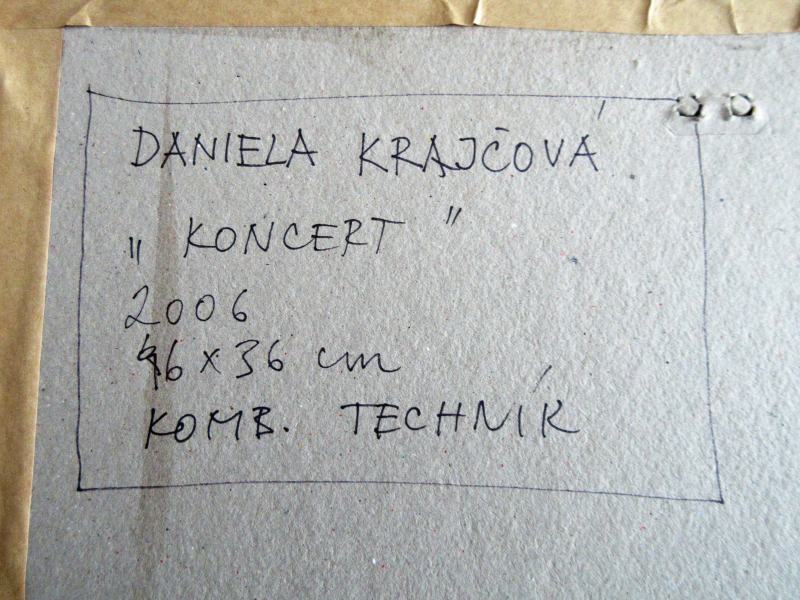 DANIELA KRAJČOVÁ
„KONCERT"
2006
46 x 36 cm
KOMB. TECHNÍK